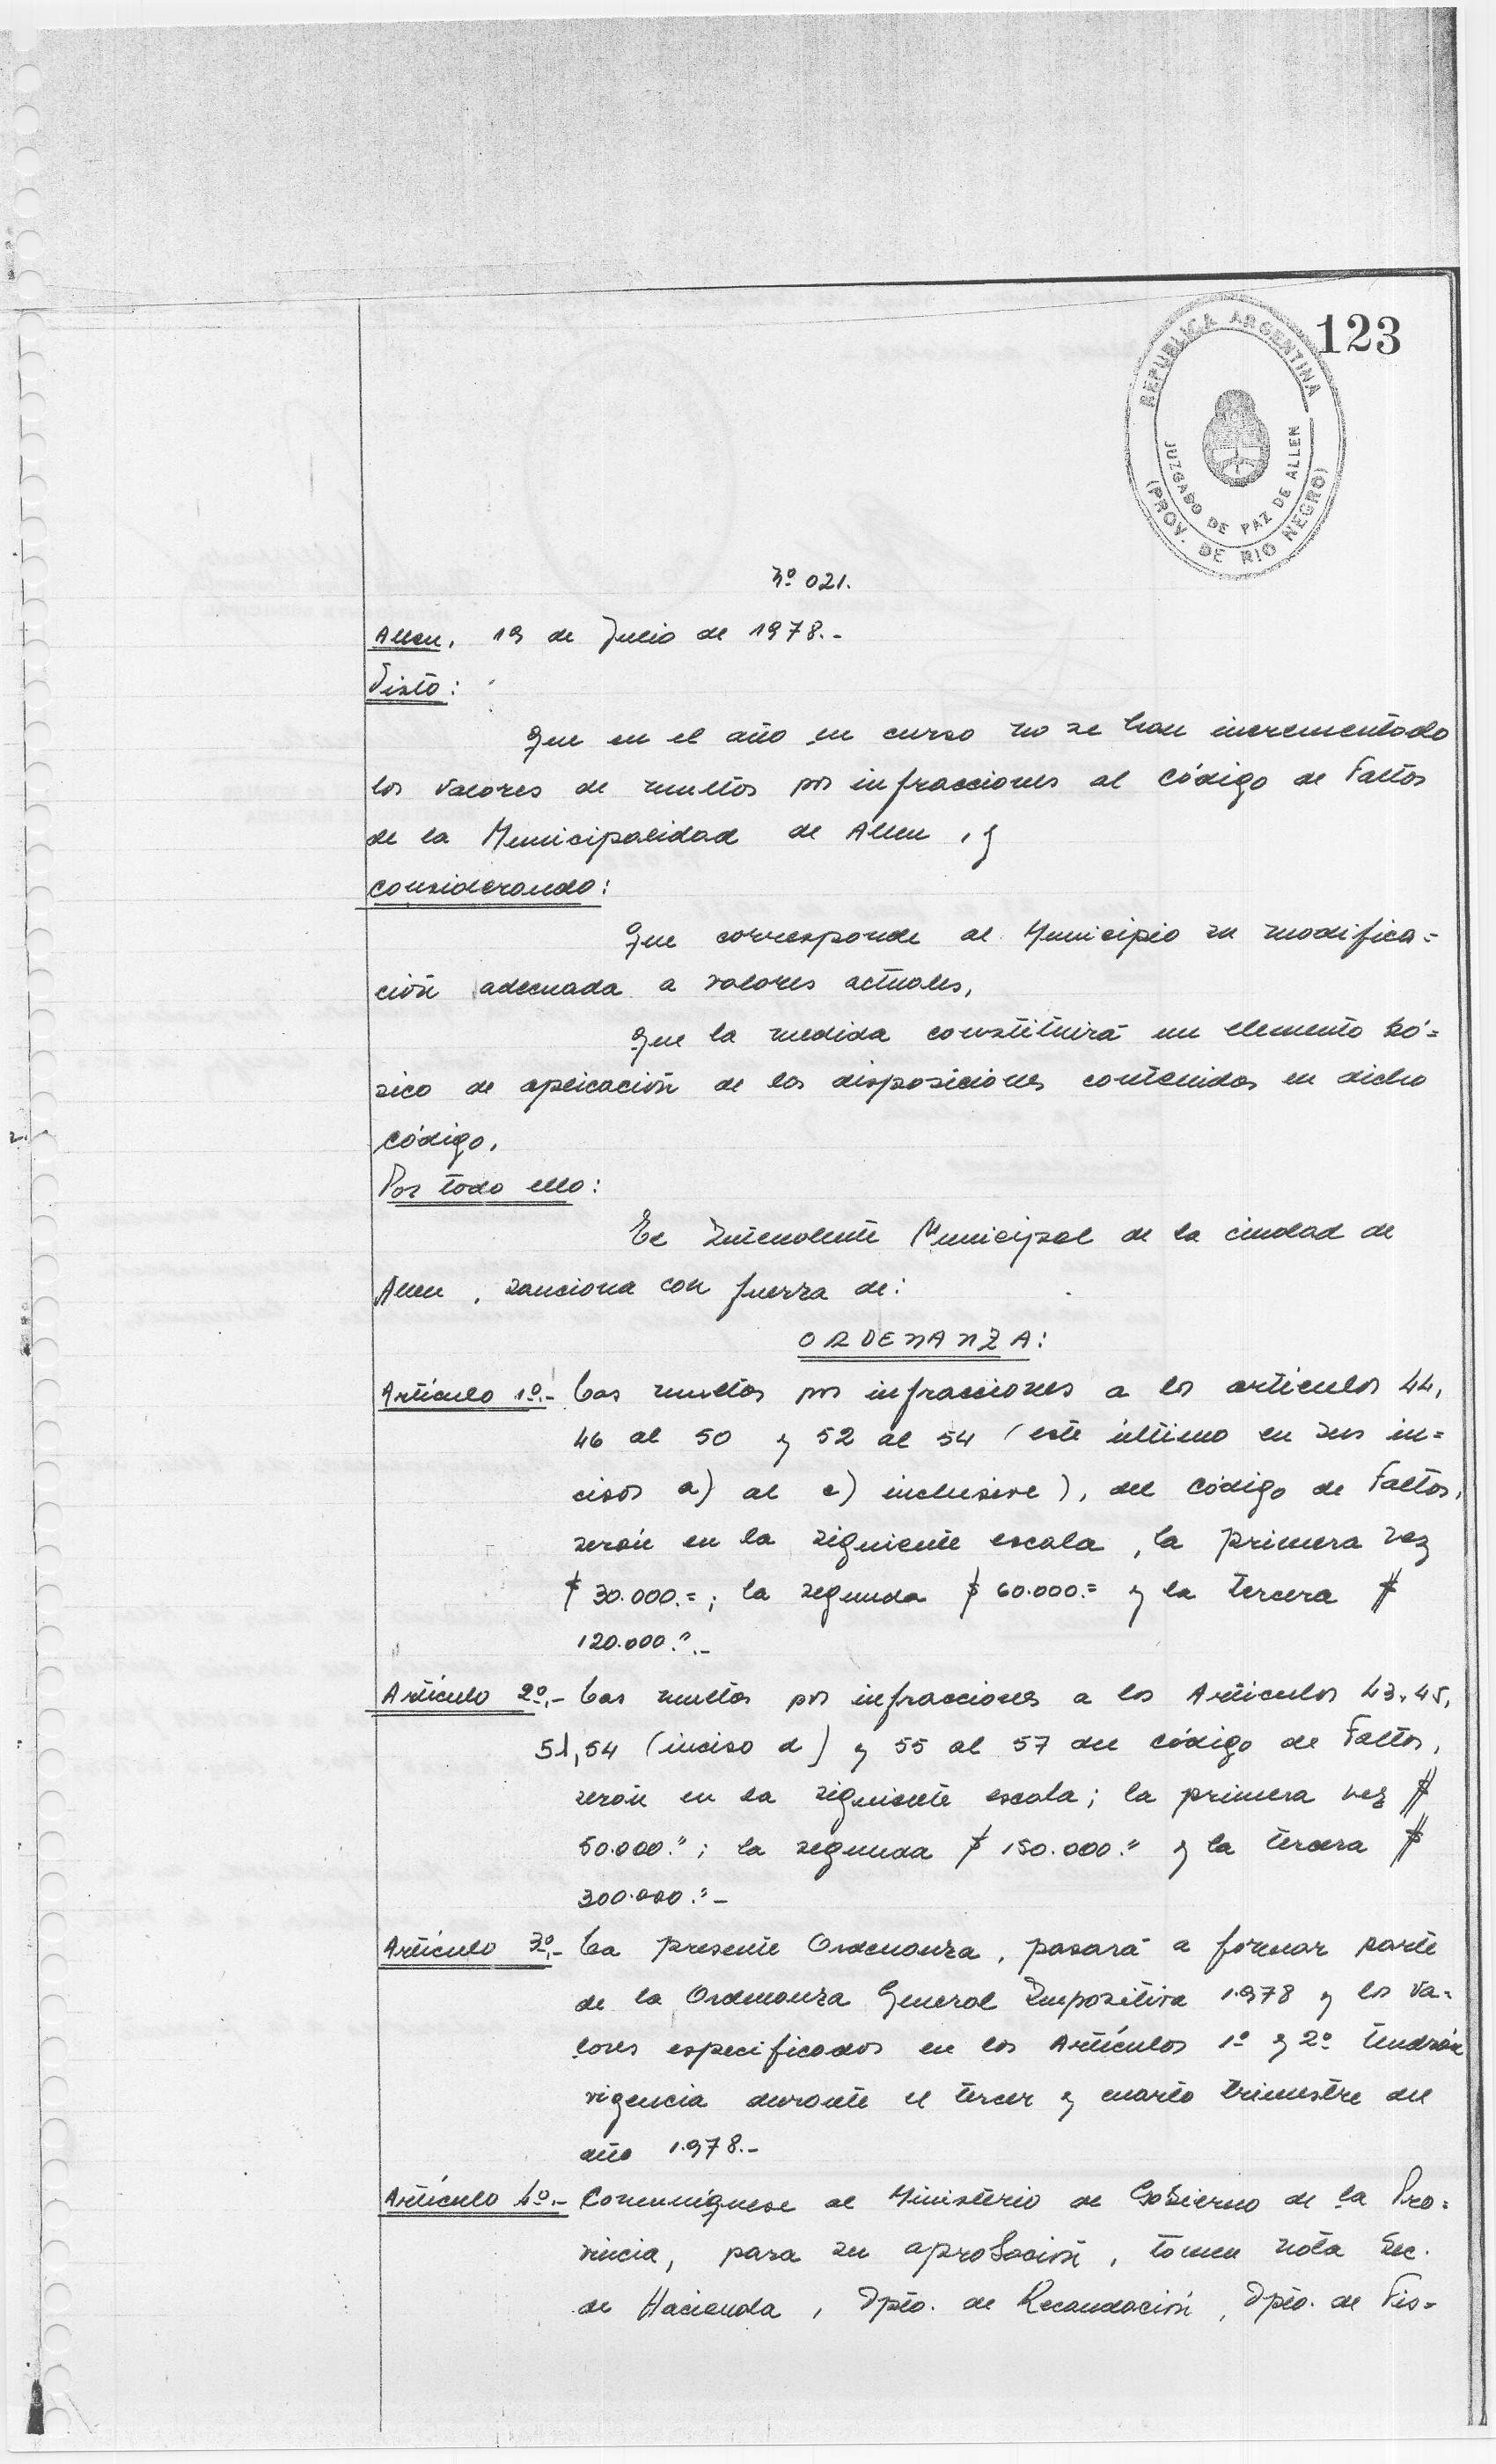 123
REPUBLICA ARGENTINA
JUZGADO DE PAZ DE ALLEN
(PROV. DE RIO NEGRO)
Nº 021.
Allen, 19 de Julio de 1978.-
Visto:
Que en el año en curso no se han incrementado
los valores de multas por infracciones al código de Faltas
de la Municipalidad de Allen, y
considerando:
Que corresponde al Municipio su modifica=
ción adecuada a valores actuales,
Que la medida constituirá un elemento bá=
sico de aplicación de las disposiciones contenidas en dicho
código,
Por todo ello:
El Intendente Municipal de la ciudad de
Allen, sanciona con fuerza de:
ORDENANZA:
Artículo 1º.- Las multas por infracciones a los artículos 44,
46 al 50 y 52 al 54 (este último en sus in=
cisos a) al c) inclusive), del código de Faltas,
serán en la siguiente escala, la primera vez
$ 30.000.=; la segunda $ 60.000.= y la tercera $
120.000.".-
Artículo 2º.- Las multas por infracciones a los Artículos 43, 45,
51, 54 (inciso d) y 55 al 57 del código de Faltas,
serán en la siguiente escala; la primera vez $
50.000."; la segunda $ 150.000." y la tercera $
300.000."-
Artículo 3º.- La presente Ordenanza, pasará a formar parte
de la Ordenanza General Impositiva 1.978 y los va=
lores especificados en los Artículos 1º y 2º tendrán
vigencia durante el tercer y cuarto trimestre del
año 1.978.-
Artículo 4º.- Comuníquese al Ministerio de Gobierno de la Pro=
vincia, para su aprobación, tomen nota Sec.
de Hacienda, Dpto. de Recaudación, Dpto. de Fis=